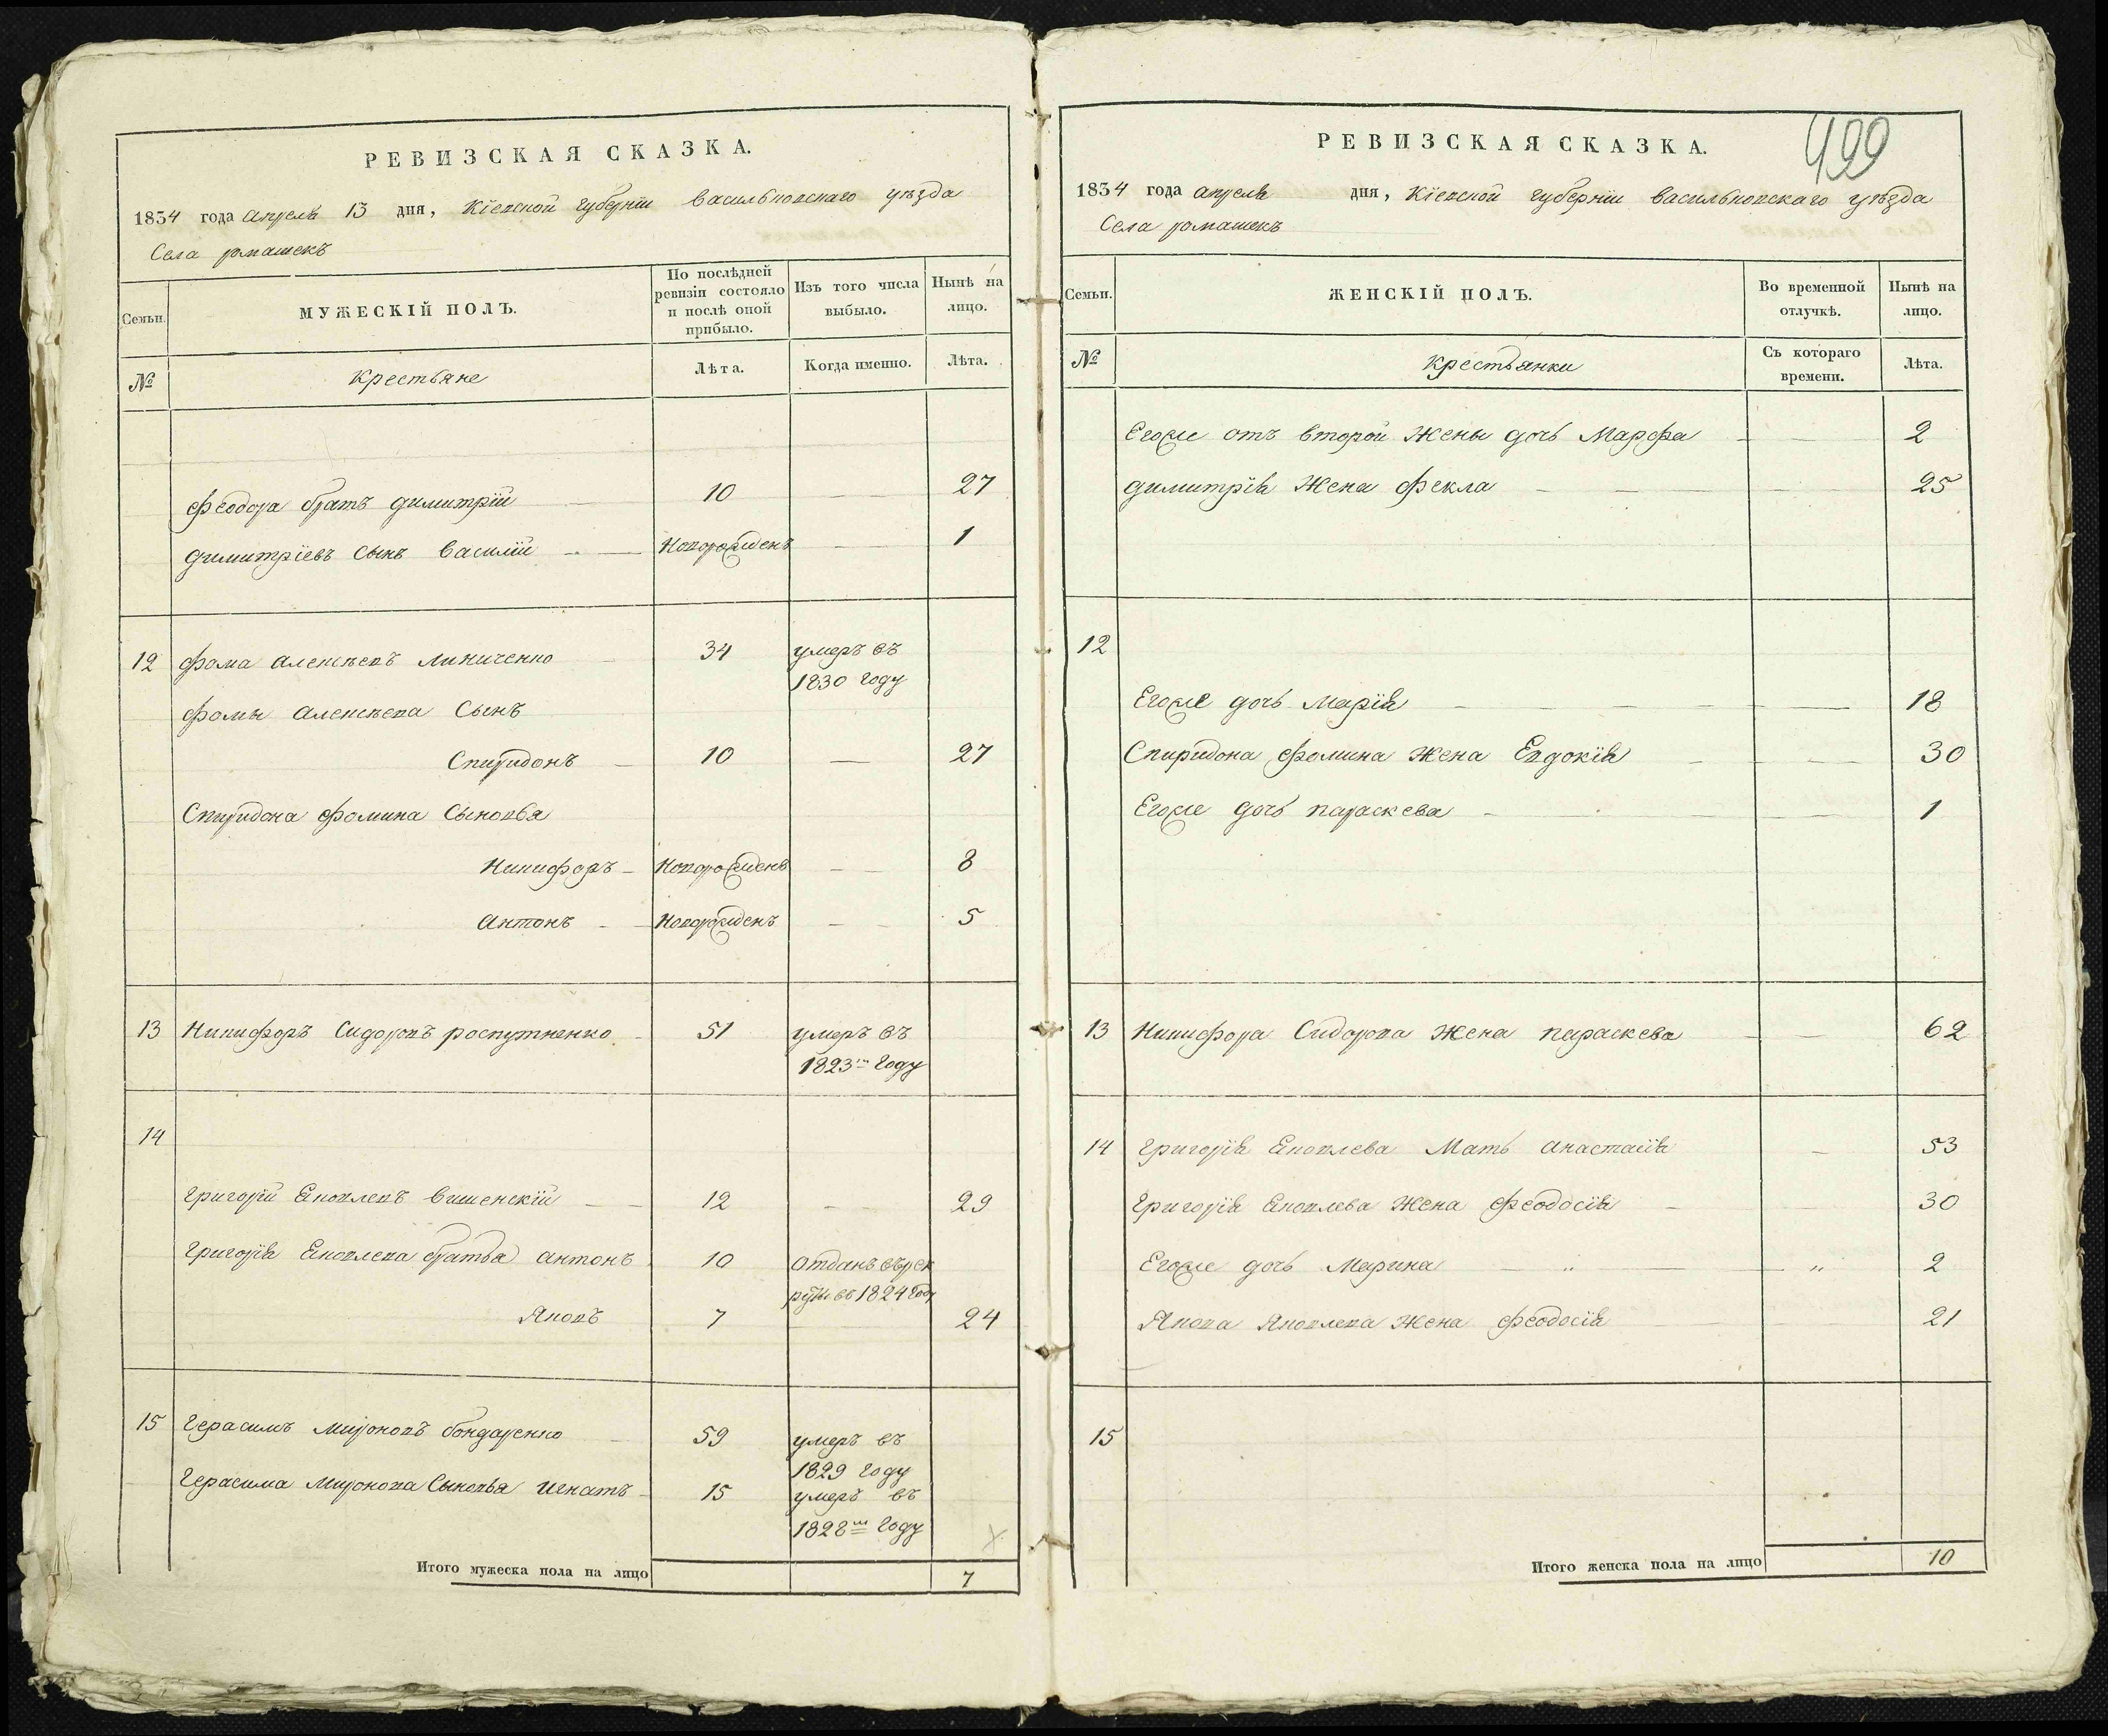 РЕВИЗСКАЯ СКАЗКА.
1834 года апреля 13 дня, Кіевской губерніи васильковскаго уѣзда
Села ромашекъ
Семьи.
МУЖЕСКІЙ ПОЛЪ.
По послѣдней
ревизіи состояло
и послѣ оной
прибыло.
Изъ того числа
выбыло.
Нынѣ на
лицо.
№
крестьяне
Лѣта.
Когда именно.
Лѣта.
феодора братъ димитрій 10 — 27
димитріевъ сынъ василій — новорожденъ — 1
12 фома алексѣевъ линиченко 34 умеръ въ
1830 году
фомы алексѣева Сынъ
Спиридонъ — 10 — 27
Спиридона фомина Сыновья
Никифоръ — новорожденъ — 8
антонъ — новорожденъ — 5
13 Никифоръ Сидоровъ роспутненко 51 умеръ въ
1823м году
14
григорій Яковлевъ вишенскій — 12 — 29
григорія Яковлева братья антонъ 10 отданъ въ рек
руты въ 1824 году
Яковъ 7 24
15 герасимъ мироновъ бондаренко 59 умеръ въ
1829 году
герасима миронова Сыновья игнатъ 15 умеръ въ
1828м году
Итого мужеска пола на лицо 7
499
РЕВИЗСКАЯ СКАЗКА.
1834 года апреля дня, Кіевской губерніи васильковскаго уѣзда
Села ромашекъ
Семьи.
ЖЕНСКІЙ ПОЛЪ.
Во временной
отлучкѣ.
Нынѣ на
лицо.
№
крестьянки
Съ котораго
времени.
Лѣта.
Егоже отъ второй жены дочь Марфа — 2
димитрія жена фекла — 25
12
Егоже дочь Марія — 18
Спиридона фомина жена Евдокія — 30
Егоже дочь параскева — 1
13 Никифора Сидорова жена параскева — 62
14 григорія Яковлева Мать анастасія — 53
григорія Яковлева жена феодосія — 30
Егоже дочь Марина — " — " 2
Якова Яковлева жена феодосія — 21
15
Итого женска пола на лицо 10